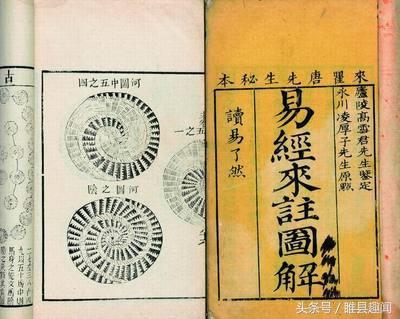 來瞿唐先生秘本
廬陵高雪君先生鑒定
永川凌厚子先生原點
易經來註圖解
讀易了然
河圖中五之四
五之一
河圖之陰
古
头条号 / 睢县趣闻